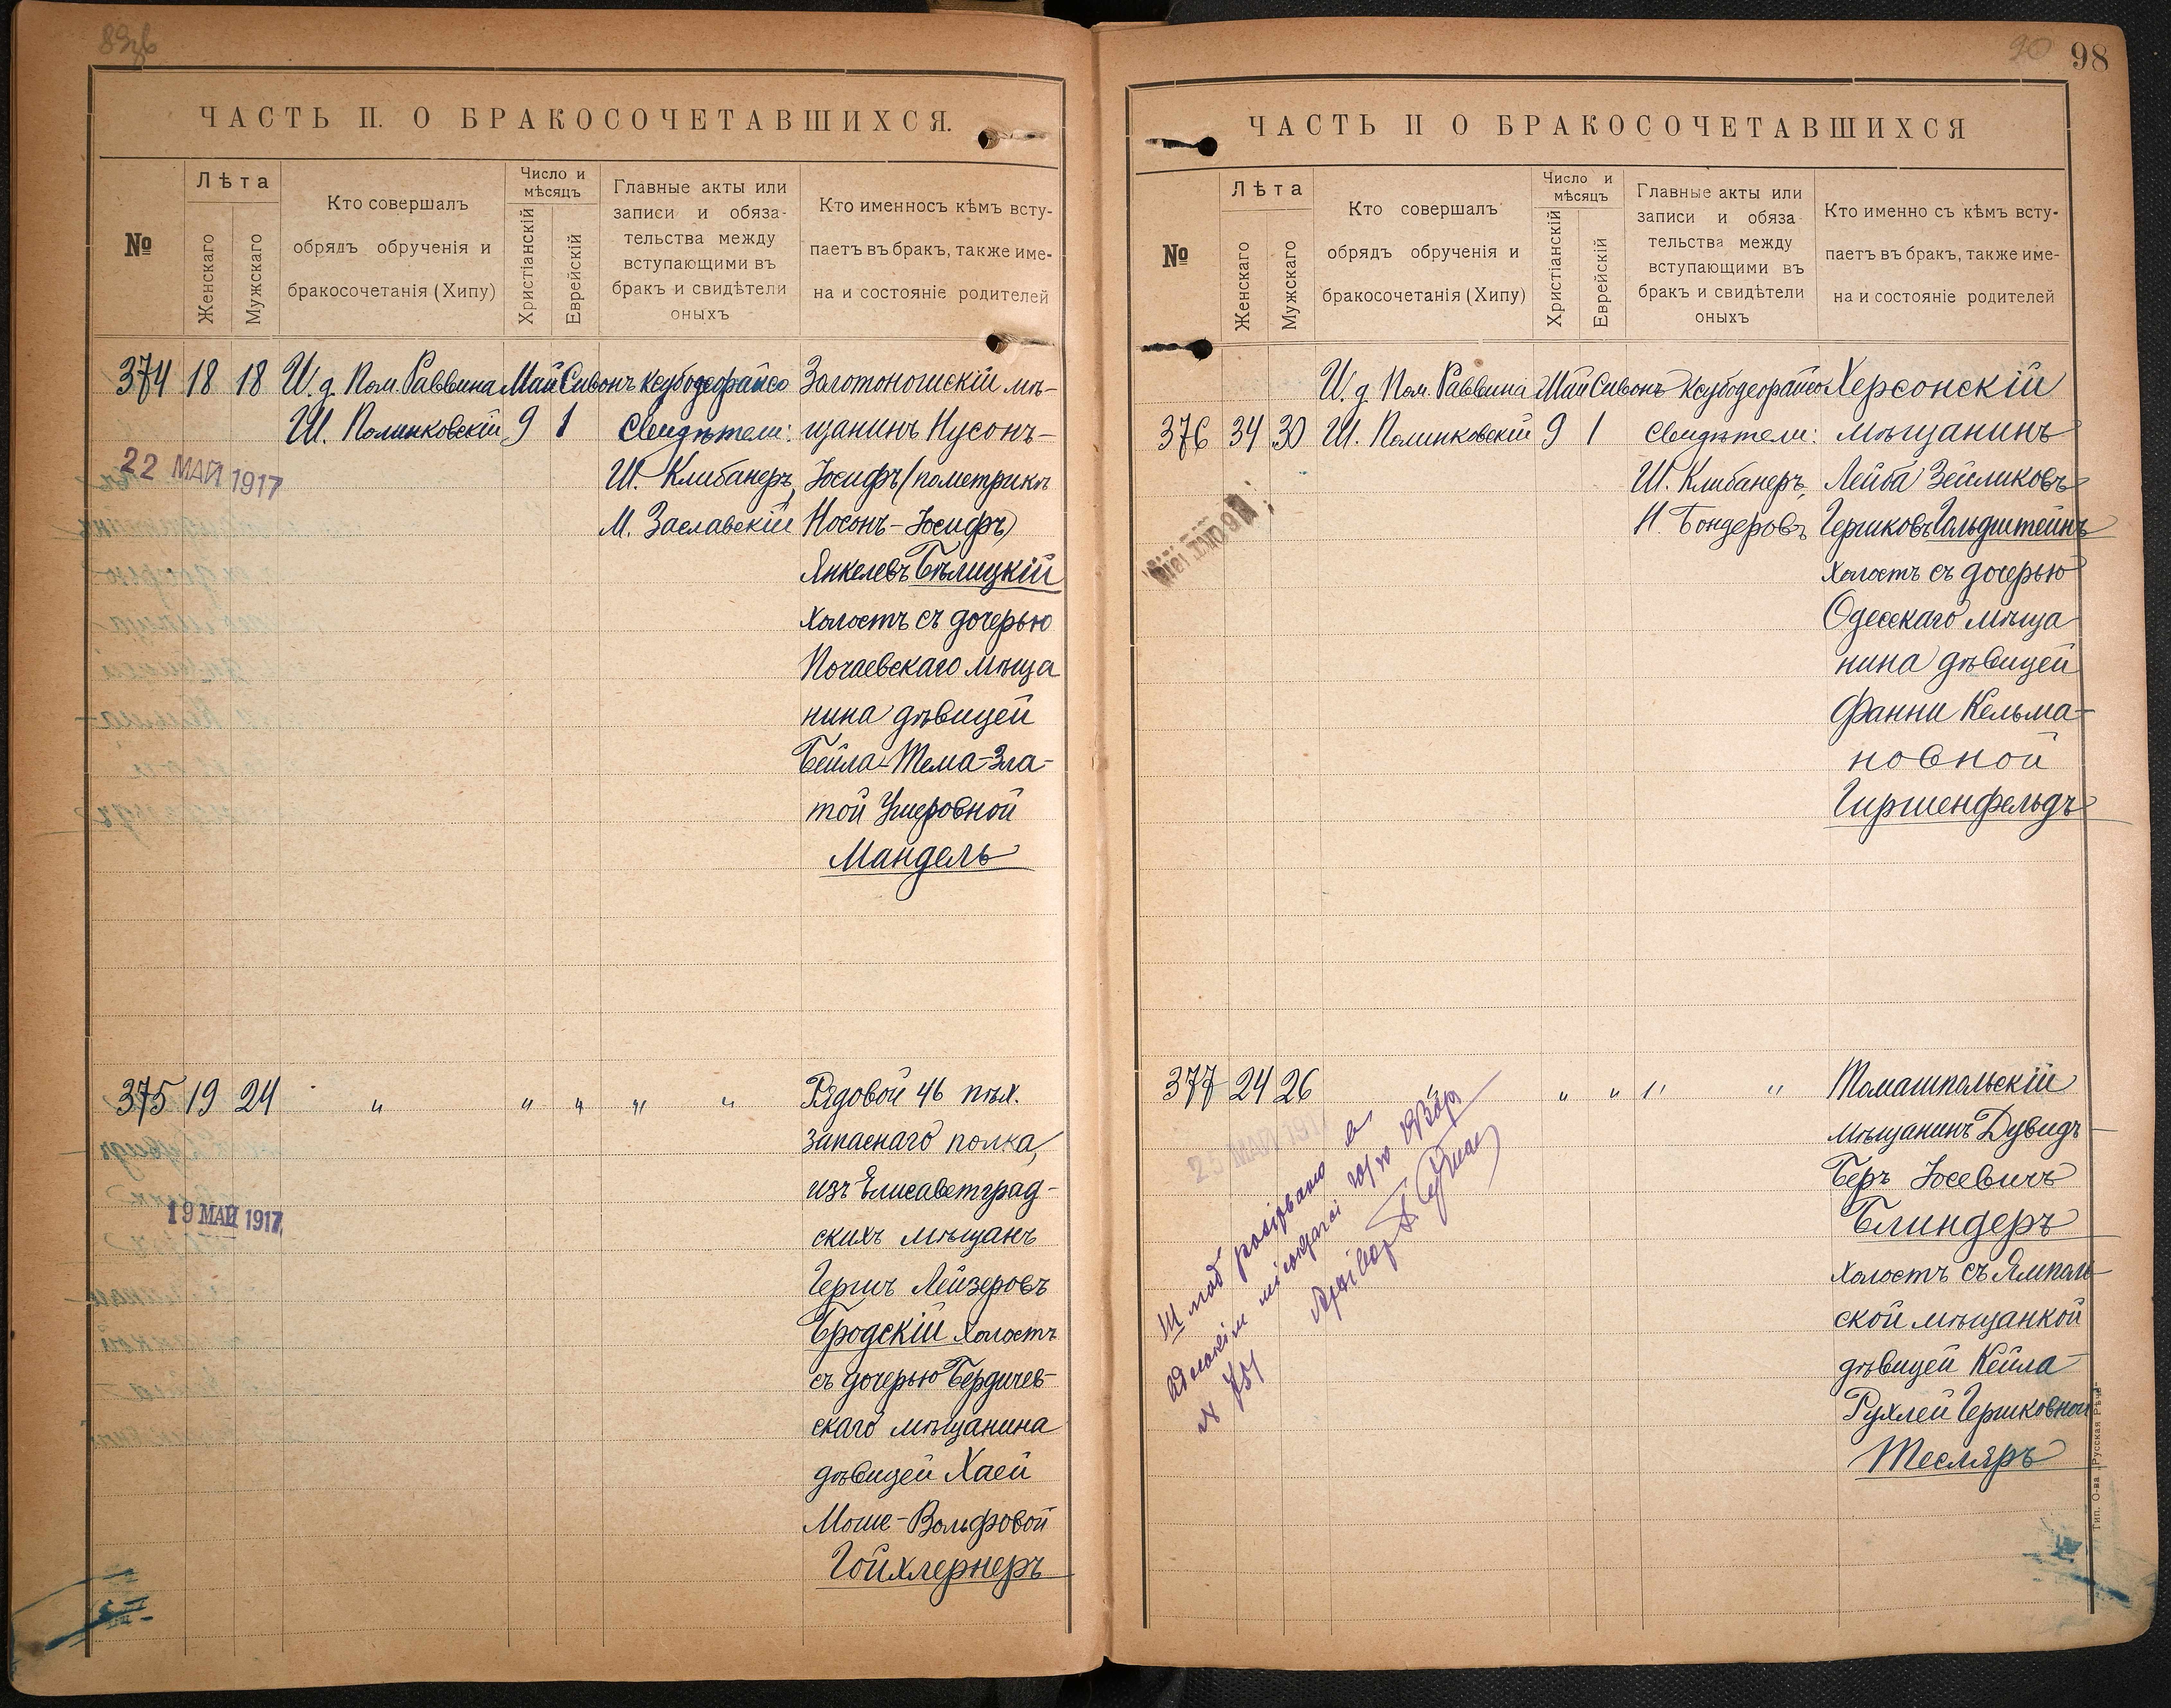 ЧАСТЬ II. О БРАКОСОЧЕТАВШИХСЯ.
№
Лѣта
Женскаго
Мужскаго
Кто совершалъ
обрядъ обрученія и
бракосочетанія (Хипу)
Число и
мѣсяцъ
Христіанскій
Еврейскій
Главные акты или
записи и обяза-
тельства между
вступающими въ
бракъ и свидѣтели
оныхъ
Кто именносъ кѣмъ всту-
паетъ въ бракъ, также име-
на и состояніе родителей
374 18 18
И. д. Пом. Раввина
Ш. Полинковскій
Май
9
Сивонъ
1
Свидѣтели:
Ш. Клибанеръ,
М. Заславскій
Золотоношскій мѣ-
щанинъ Нусонъ-
Іосифъ (пометрикѣ
Носонъ-Іосифъ)
Янкелевъ Бѣлицкій
холостъ съ дочерью
Почаевскаго мѣща
нина дѣвицей
Бейла-Тема-Зла-
той Умеровной
Мандель
22 МАЙ 1917
375 19 24 " " " " "
Рядовой 46 пѣх.
запаснаго полка,
изъ Елисаветград-
скихъ мѣщанъ
Гершъ Лейзеровъ
Бродскій холостъ
съ дочерью Бердичев-
скаго мѣщанина
дѣвицей Хаей
Моше-Вольфовой
Гойхлернеръ
19 МАЙ 1917
90 98
ЧАСТЬ II О БРАКОСОЧЕТАВШИХСЯ
№
Лѣта
Женскаго
Мужскаго
Кто совершалъ
обрядъ обрученія и
бракосочетанія (Хипу)
Число и
мѣсяцъ
Христіанскій
Еврейскій
Главные акты или
записи и обяза
тельства между
вступающими въ
бракъ и свидѣтели
оныхъ
Кто именно съ кѣмъ всту-
паетъ въ бракъ, также име-
на и состояніе родителей
376 34 30
И. д. Пом. Раввина
Ш. Полинковскій
Май
9
Сивонъ
1
Свидѣтели:
Ш. Клибанеръ,
Н. Бондеровъ
Херсонскій
мѣщанинъ
Лейба Зейликовъ
Гершковъ Гольдштейнъ
холостъ съ дочерью
Одесскаго мѣща
нина дѣвицей
Фанни Кельма-
новной
Гиршенфельдъ
377 24 26 " " " " "
Томашпольскій
мѣщанинъ Дувидъ-
Беръ Іосевичъ
Блиндеръ
холостъ съ Ямполь-
ской мѣщанкой
дѣвицей Кейла-
Рухлей Гершковной
Тесляръ
25 МАЙ 191
Тип. О-ва „Русская Рѣчь"